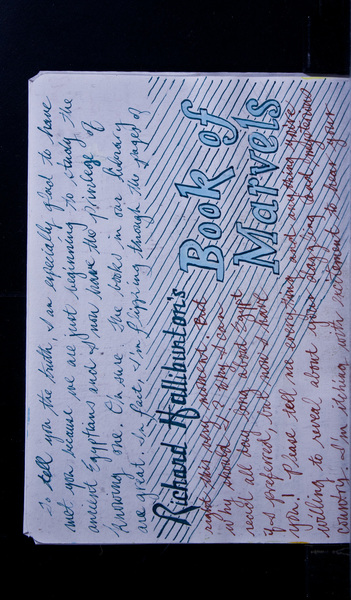 to tell you the truth, I am especially glad to have
met you because we are just beginning to study the
ancient Egyptians and I now have the privilege of
knowing one. I'm sure the books in our library
are great. In fact, I'm flipping through the pages of
Richard Halliburton's
Book of
Marvels
right this very moment. But
why should I? Why I can
read all day long about Egypt
if I preferred, but now I have
you! Please tell me everything and anything you're
willing to reveal about your dazzling and mysterious
country. I'm dying with excitement to hear your